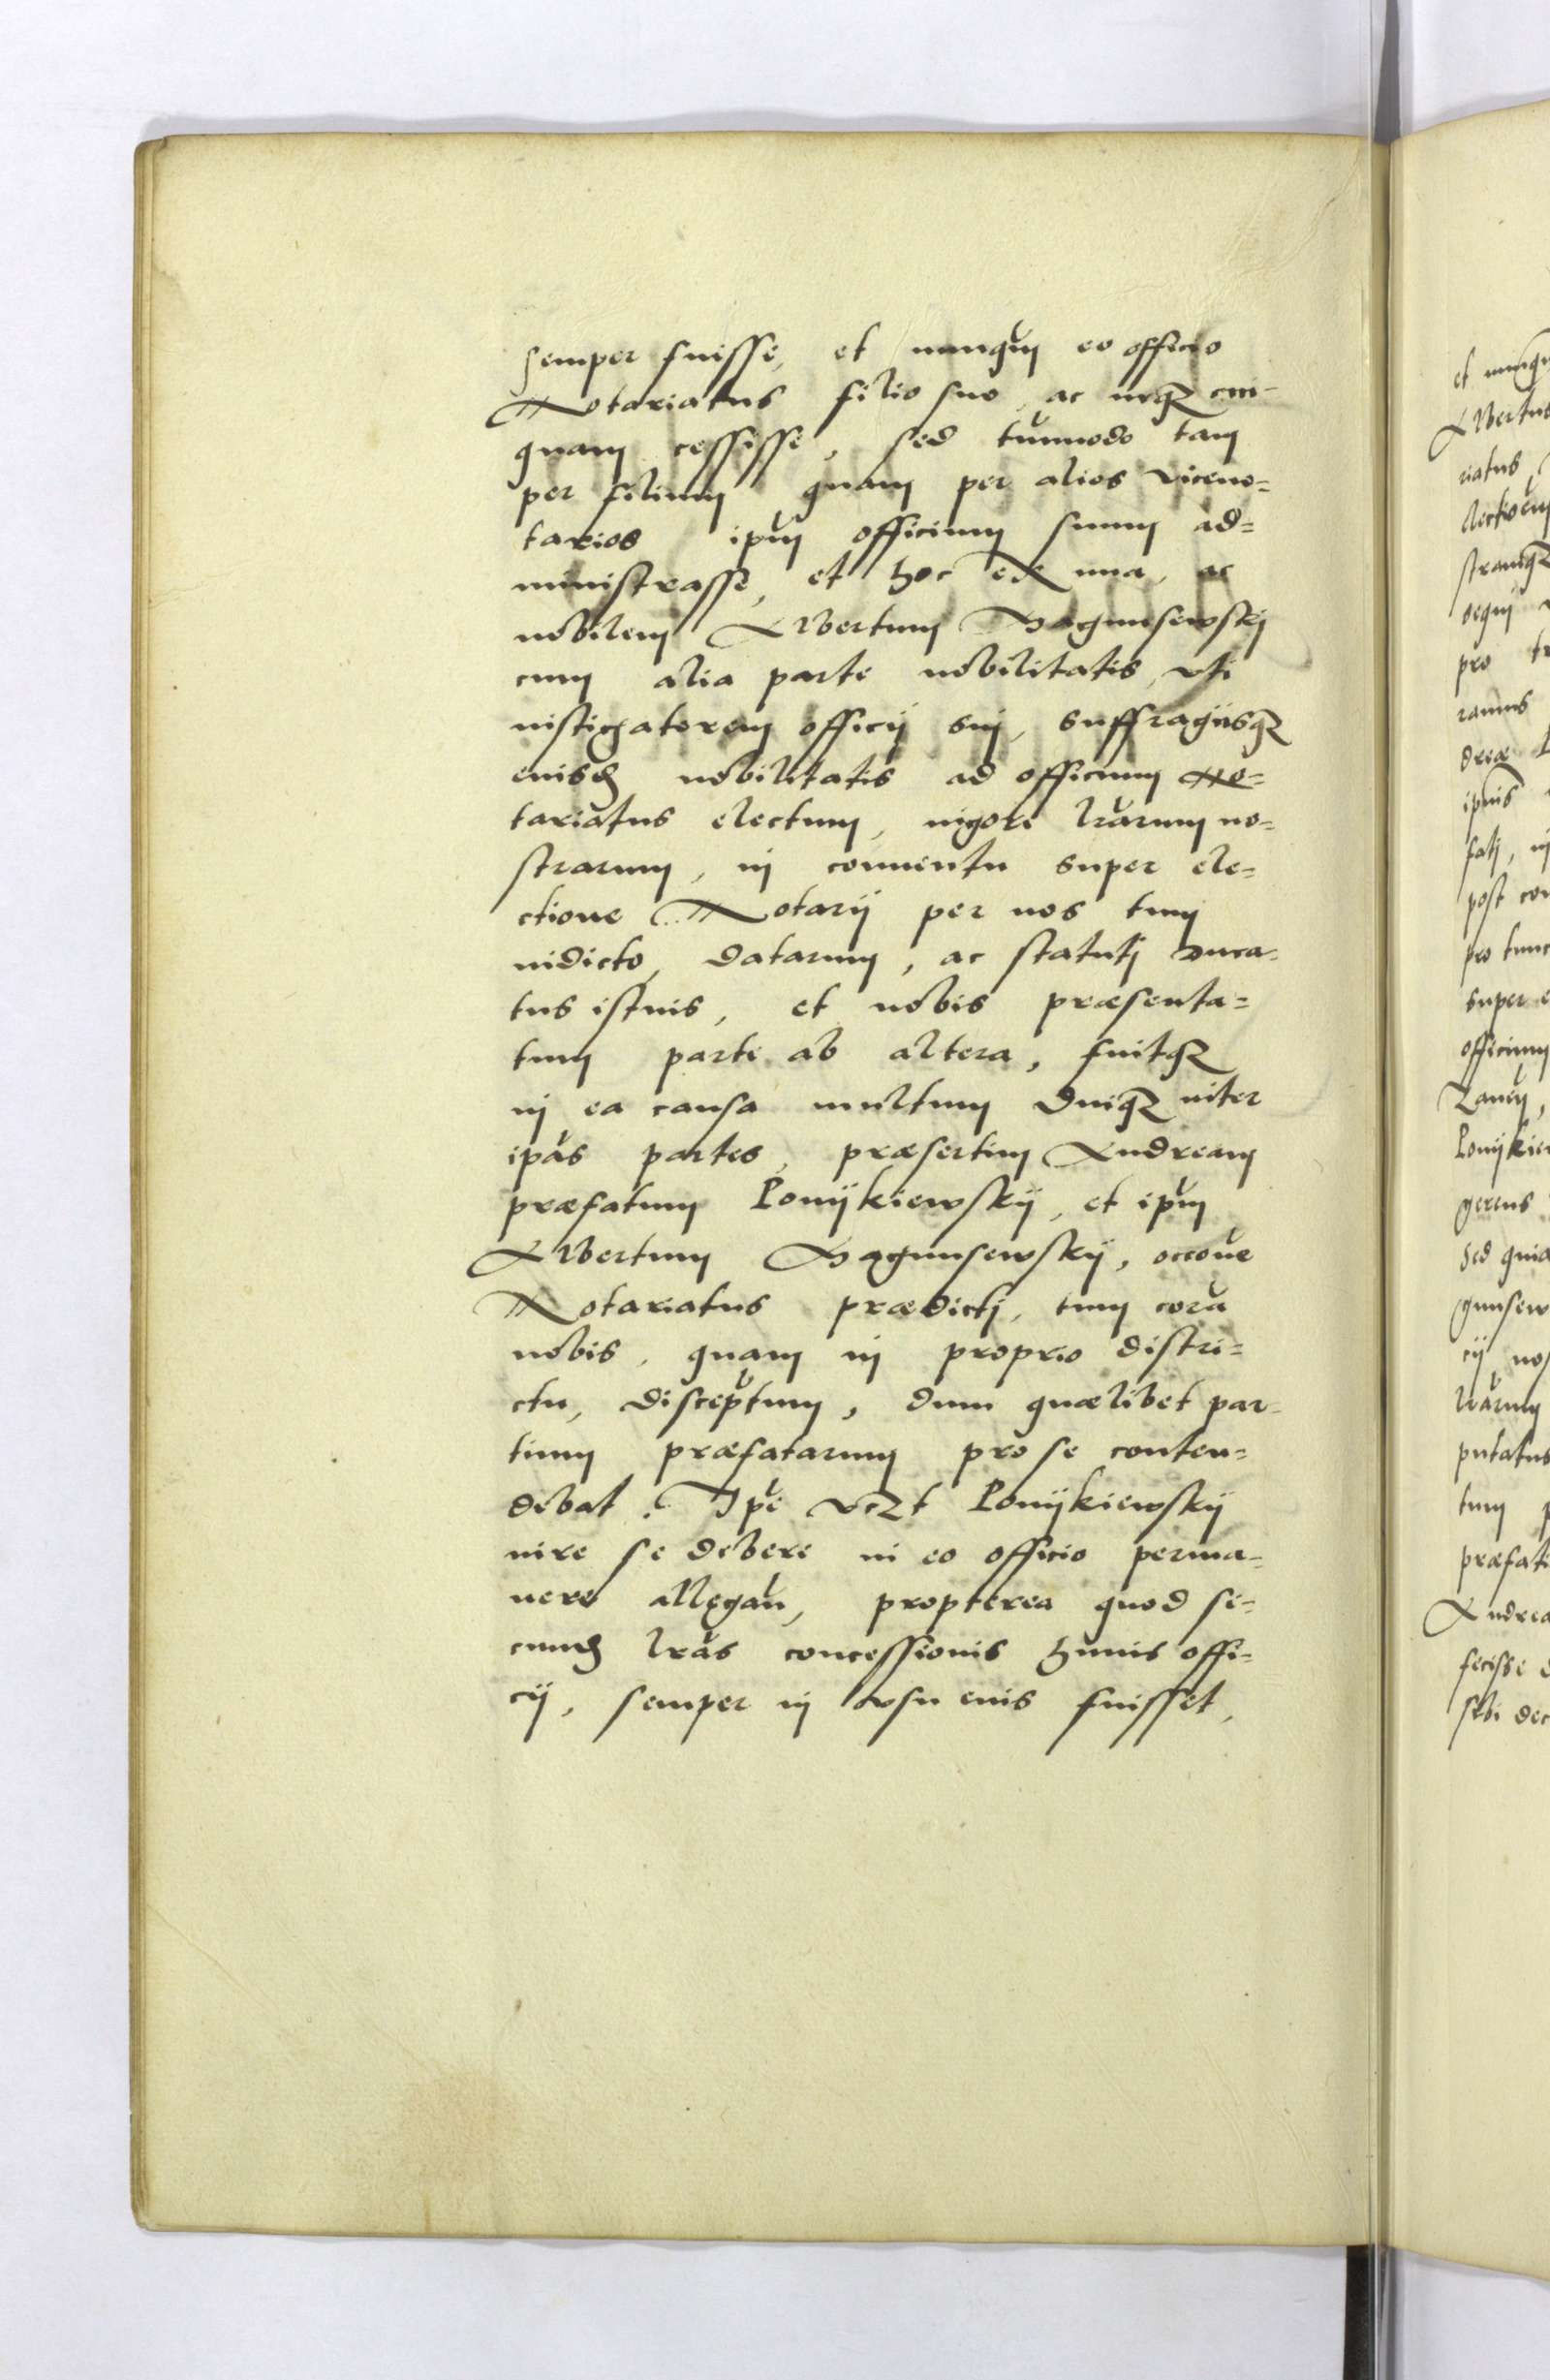 semper fuisse, et nunqũ eo officio
Notariatus filio suo, ac neq₃ cui-
quam cessisse, sed tũmodo tam
per filium quam per alios viceno=
tarios ip̃m officium suum ad=
ministrasse, et hoc ex una, ac
nobilem Albertum Bagunsewskij
cum alia parte nobilitatis, vti
instigatorem officij sui, suffragijsq₃
eiusd nobilitatis ad officium No=
tariatus electum, vigore lr̃arum no=
strarum, in conuentu super ele=
ctione Notarij per nos tum
indicto, datarum, ac statuti Duca=
tus istius, et nobis præsenta=
tum parte ab altera, fuitq₃
in ea causa multum diuq₃ inter
ip̃as partes, præsertim Andream
præfatum Ponijkiewskij, et ip̃m
Albertum Bagunsewskij, occõne
Notariatus prædicti, tum corã
nobis, quam in proprio distri=
ctu, discep̃tum, dum quælibet par=
tium præfatarum pro se conten=
debat. Ip̃e vczt Ponijkiewskij
iure se debere in eo officio perma=
nere allegan̄, propterea quod se=
cund lr̃as concessionis huius offi=
cij, semper in vsu eius fuisset,
et nunq
Albertus
riatus
stramq₃
segui
pro
ramus
dreæ
ip̃ius
fati, in
post con
pro tunc
super e
officium
Ponijkie
gerens
Sed quia
gunsew
cij nos
lr̃arum
putatus
tum p
præfati
Andrea
fecisse d
sibi dec